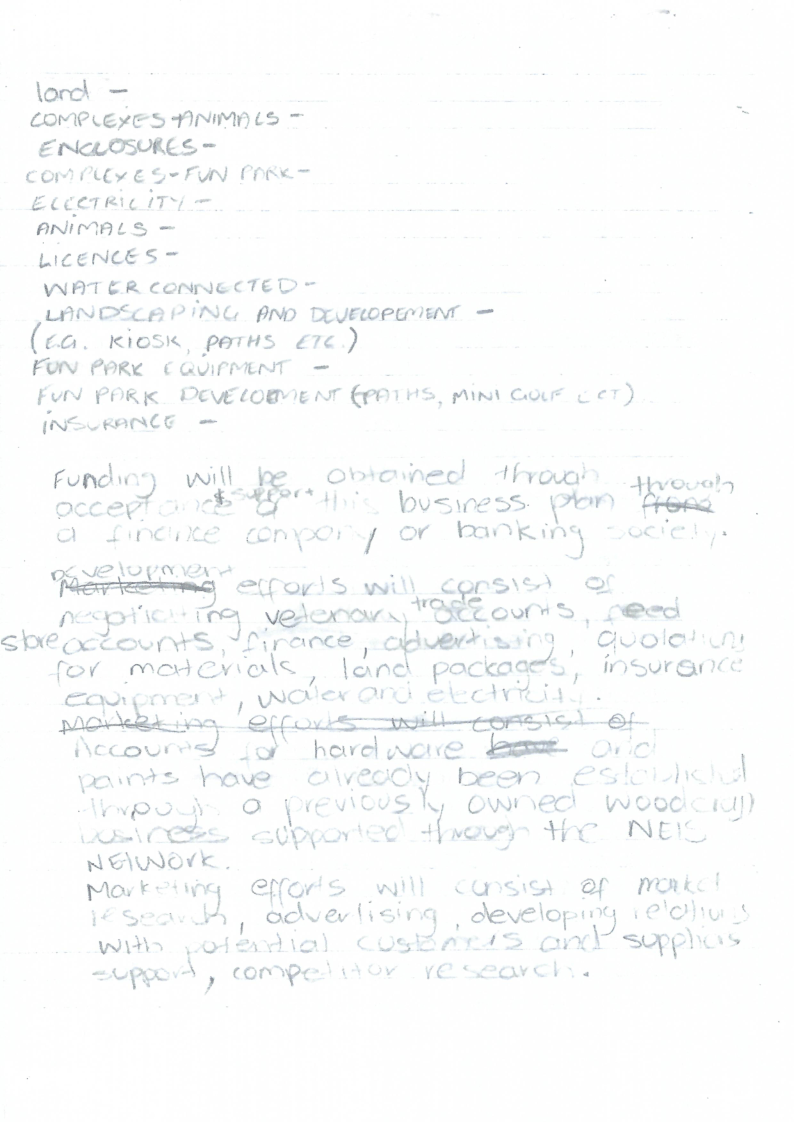 land -
COMPLEXES-ANIMALS -
ENCLOSURES -
COMPLEXES-FUN PARK -
ELECTRICITY -
ANIMALS -
LICENCES -
WATER CONNECTED -
LANDSCAPING AND DEVELOPEMENT -
(E.G. KIOSK, PATHS ETC.)
FUN PARK EQUIPMENT -
FUN PARK DEVELOEMENT (PATHS, MINI GOLF ECT)
INSURANCE -
Funding will be obtained through
acceptance & support of this business plan through
a finance company or banking society.
Development efforts will consist of
negotiating vetenary trade accounts, feed
store accounts, finance, advertising, quotations
for materials, land packages, insurance
equipment, water and electricity.
Marketing efforts will consist of
Accounts for hardware and
paints have already been established
through a previously owned woodcraft
business supported through the NEIS
NETWORK.
Marketing efforts will consist of market
research, advertising, developing relations
with potential customers and suppliers
support, competitor research.